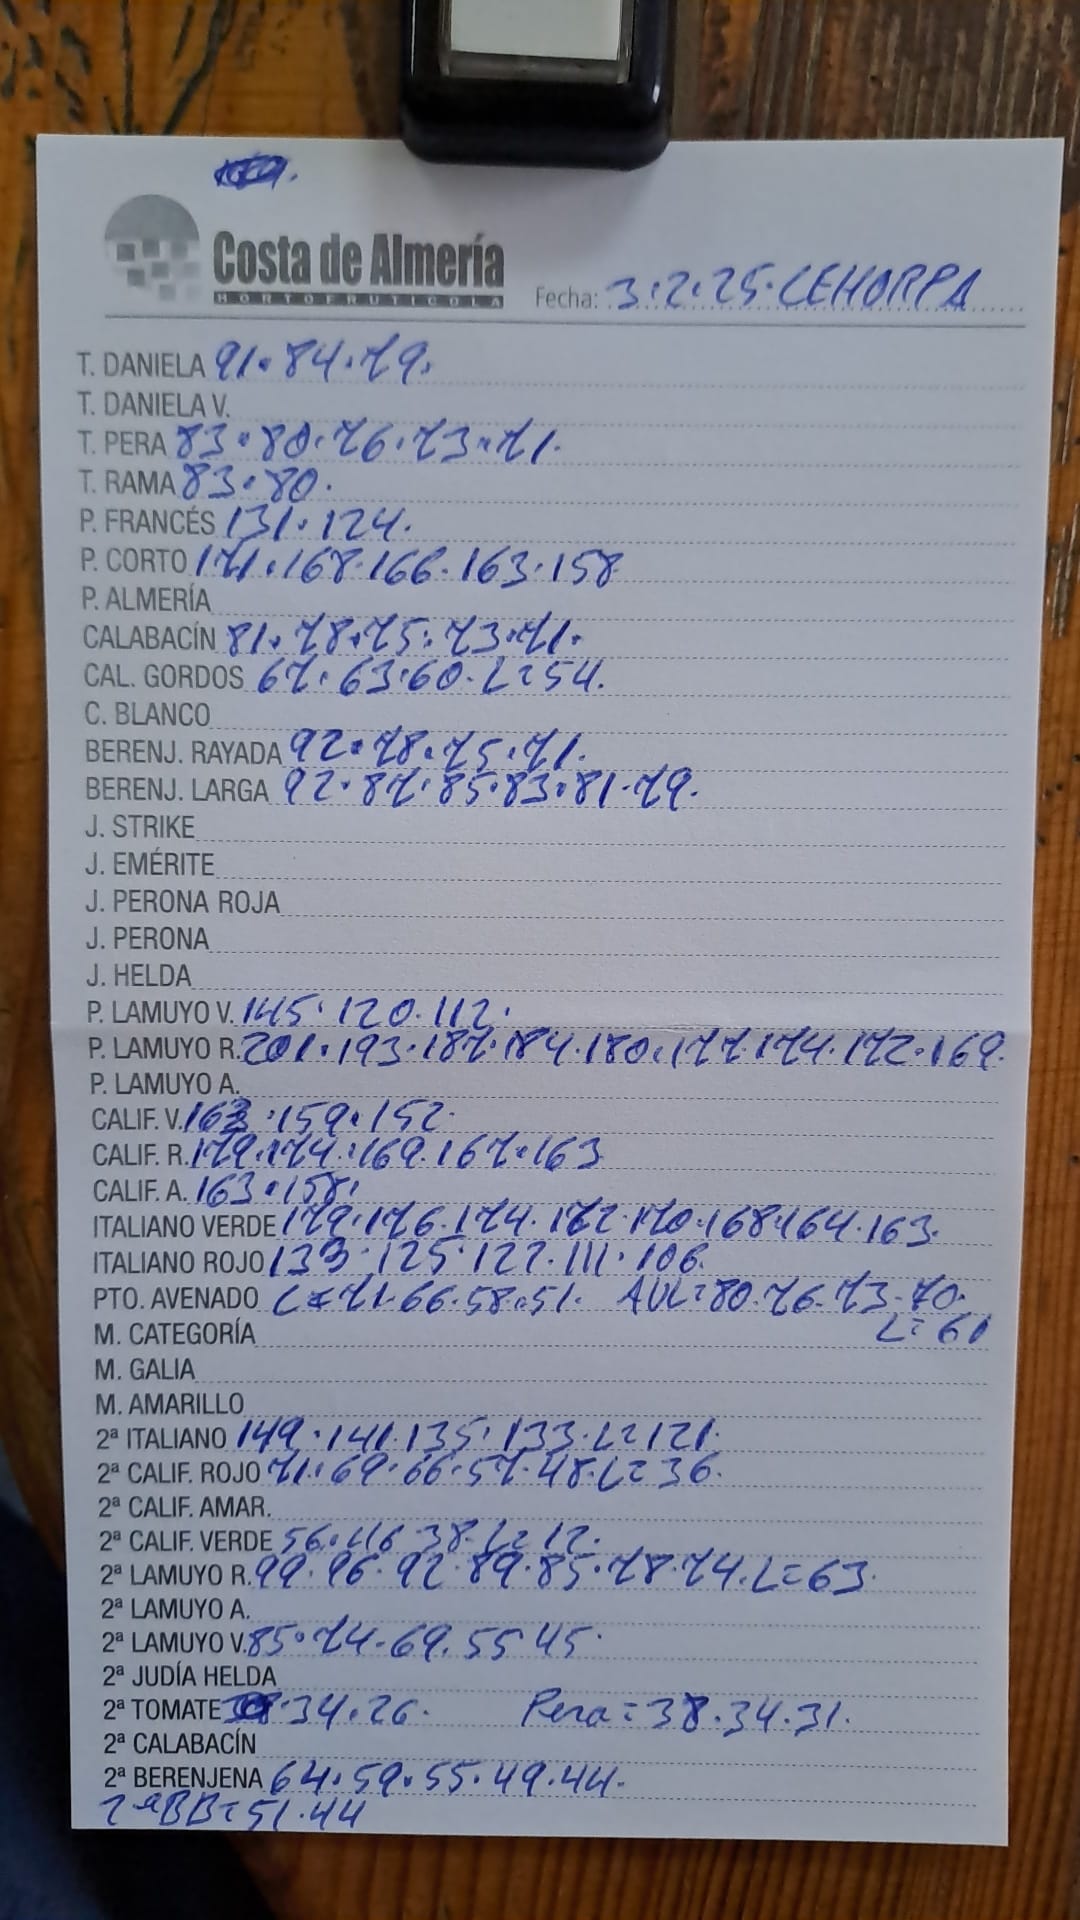 Costa de Almería
HORTOFRUTICOLA
Fecha: 3.2.25.CEHORPA
T. DANIELA 91.84.79.
T. DANIELA V.
T. PERA 83.80.76.73.71.
T. RAMA 83.80.
P. FRANCÉS 131.124.
P. CORTO 171.168.166.163.158
P. ALMERÍA
CALABACÍN 81.78.75.73.71.
CAL. GORDOS 67.63.60.L=54.
C. BLANCO
BERENJ. RAYADA 92.78.75.71.
BERENJ. LARGA 92.87.85.83.81.79.
J. STRIKE
J. EMÉRITE
J. PERONA ROJA
J. PERONA
J. HELDA
P. LAMUYO V. 145.120.112.
P. LAMUYO R. 201.193.187.184.180.177.174.172.169.
P. LAMUYO A.
CALIF. V. 163.159.152.
CALIF. R. 179.174.169.167.163
CALIF. A. 163.158.
ITALIANO VERDE 179.176.174.172.170.168.164.163.
ITALIANO ROJO 133.125.122.111.106.
PTO. AVENADO L=71.66.58.51. AVL=80.76.73.70.
L=61
M. CATEGORÍA
M. GALIA
M. AMARILLO
2ª ITALIANO 149.141.135.133.L=121.
2ª CALIF. ROJO 71.69.66.57.48.L=36.
2ª CALIF. AMAR.
2ª CALIF. VERDE 56.46 38.L=12.
2ª LAMUYO R. 99.96.92.89.85.78.74.L=63.
2ª LAMUYO A.
2ª LAMUYO V. 85.74.69.55 45.
2ª JUDÍA HELDA
2ª TOMATE 34.26. Pera=38.34.31.
2ª CALABACÍN
2ª BERENJENA 64.59.55.49.44.
2ªBB=51.44